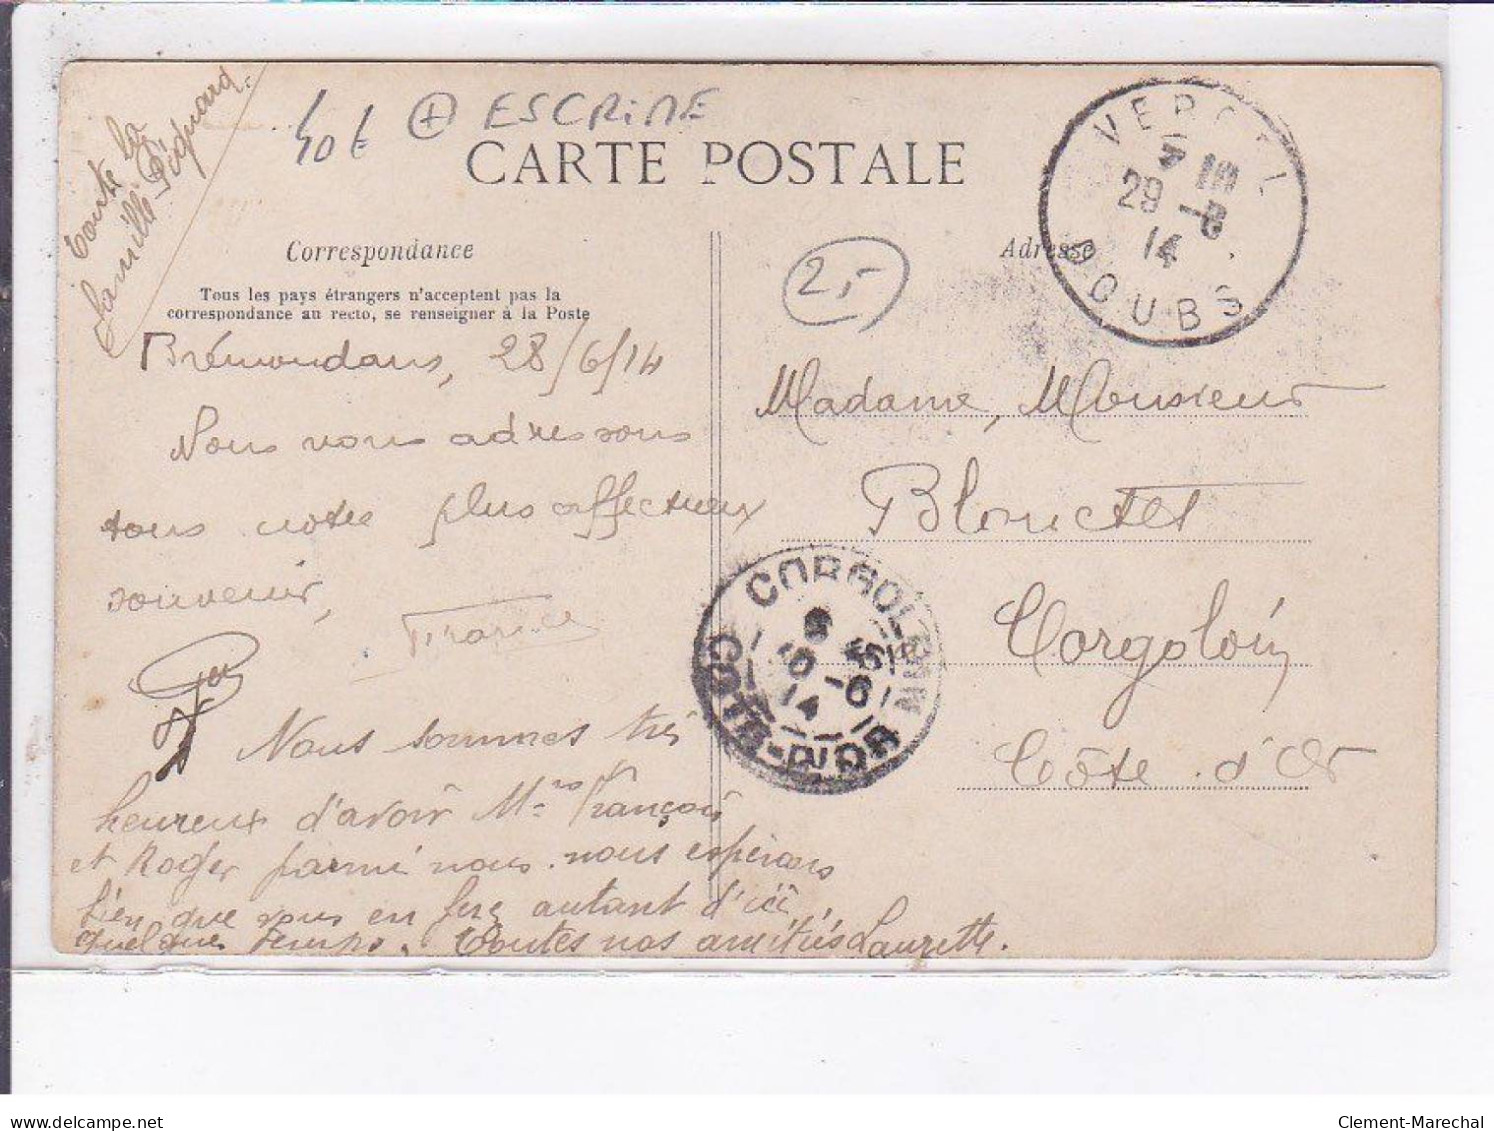 Toute la
famille
40€ + ESCRIME
CARTE POSTALE
VERCEL
7 10
29 -6
14
DOUBS
Correspondance
Adresse
2,-
Tous les pays étrangers n'acceptent pas la
correspondance au recto, se renseigner à la Poste
Brémondans, 28/6/14
Nous vous adressons
tous notre plus affectueux
souvenir,
France
Nous sommes très
heureux d'avoir François
et Roger parmi nous. nous espérons
bien que vous en ferez autant d'ici
quelques temps. Toutes nos amitiés Laurette.
Madame, Monsieur
Blouctet
Corgoloin
Côte d'Or
CORGOLOIN
30 -6
14
COTE-D'OR
delcampe.net
Clement-Marechal